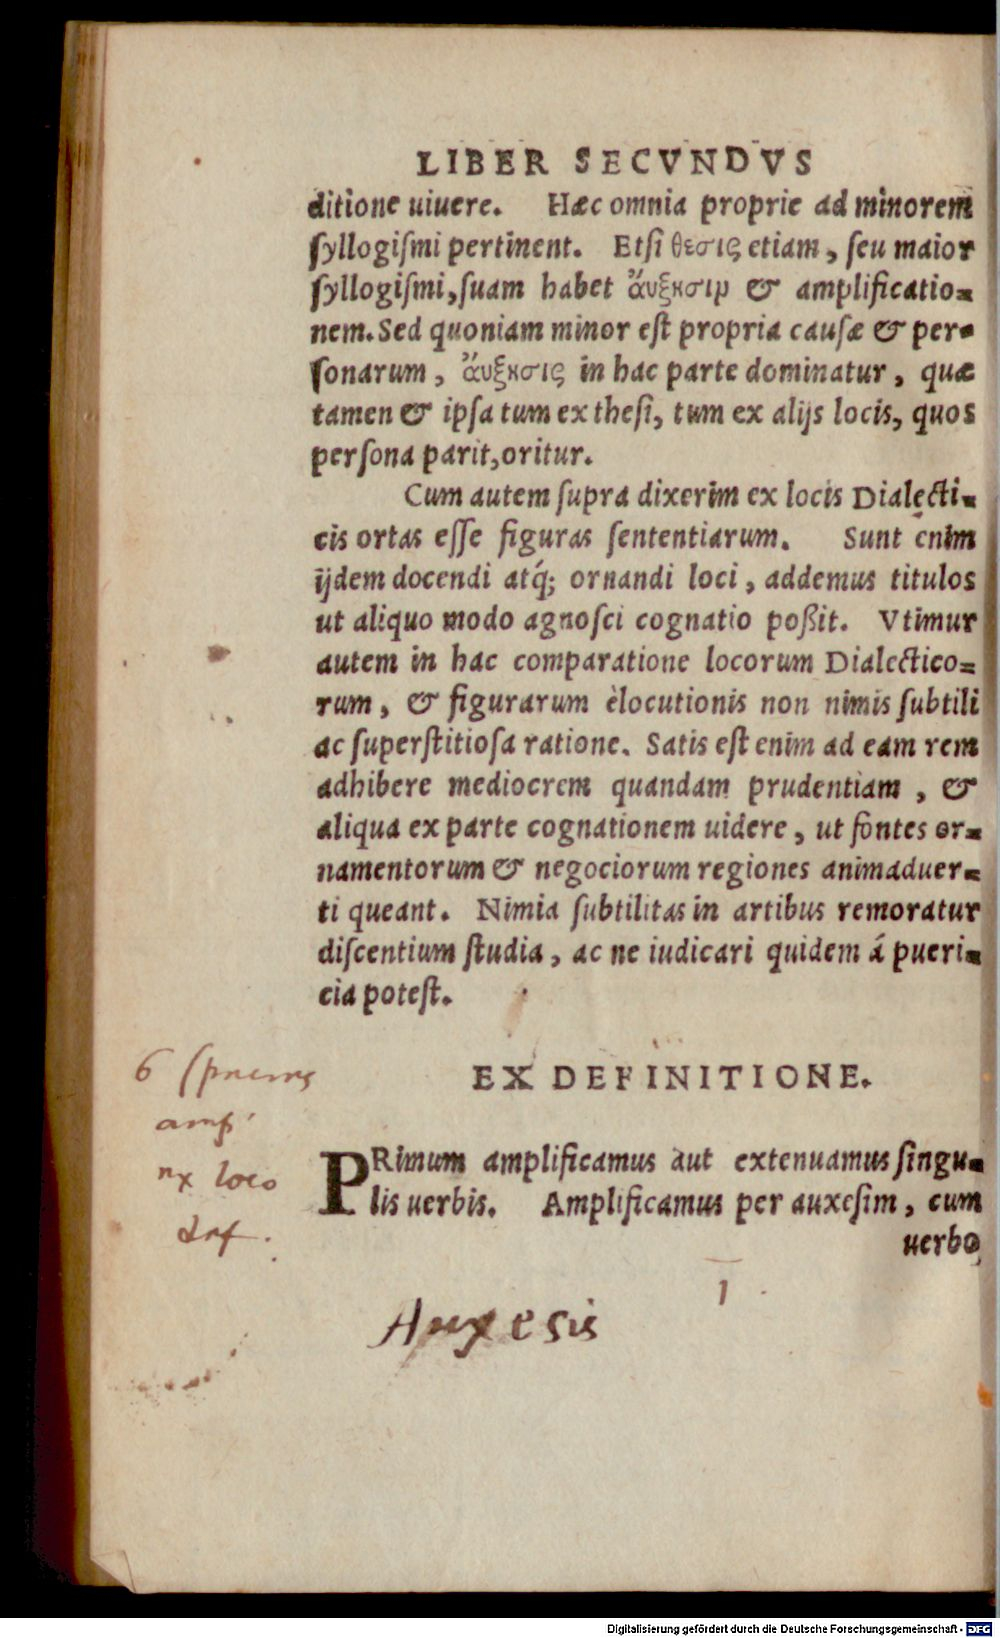 LIBER SECVNDVS
ditione uiuere. Hæc omnia proprie ad minorem
ſyllogiſmi pertinent. Etſi θεσις etiam, ſeu maior
ſyllogiſmi, ſuam habet ἄυξησιν & amplificatio=
nem. Sed quoniam minor eſt propria cauſæ & per=
ſonarum, ἄυξησις in hac parte dominatur, quæ
tamen & ipſa tum ex theſi, tum ex alijs locis, quos
perſona parit, oritur.
Cum autem ſupra dixerim ex locis Dialecti=
cis ortas eſſe figuras ſententiarum. Sunt enim
ijdem docendi atq́; ornandi loci, addemus titulos
ut aliquo modo agnoſci cognatio poßit. Vtimur
autem in hac comparatione locorum Dialectico=
rum, & figurarum èlocutionis non nimis ſubtili
ac ſuperſtitioſa ratione. Satis eſt enim ad eam rem
adhibere mediocrem quandam prudentiam, &
aliqua ex parte cognationem uidere, ut fontes or=
namentorum & negociorum regiones animaduer=
ti queant. Nimia ſubtilitas in artibus remoratur
diſcentium ſtudia, ac ne iudicari quidem á pueri=
cia poteſt.
EX DEFINITIONE.
PRimum amplificamus aut extenuamus ſingu=
lis uerbis. Amplificamus per auxeſim, cum
uerbo
6
loco
1
Auxesis
Digitalisierung gefördert durch die Deutsche Forschungsgemeinschaft - DFG